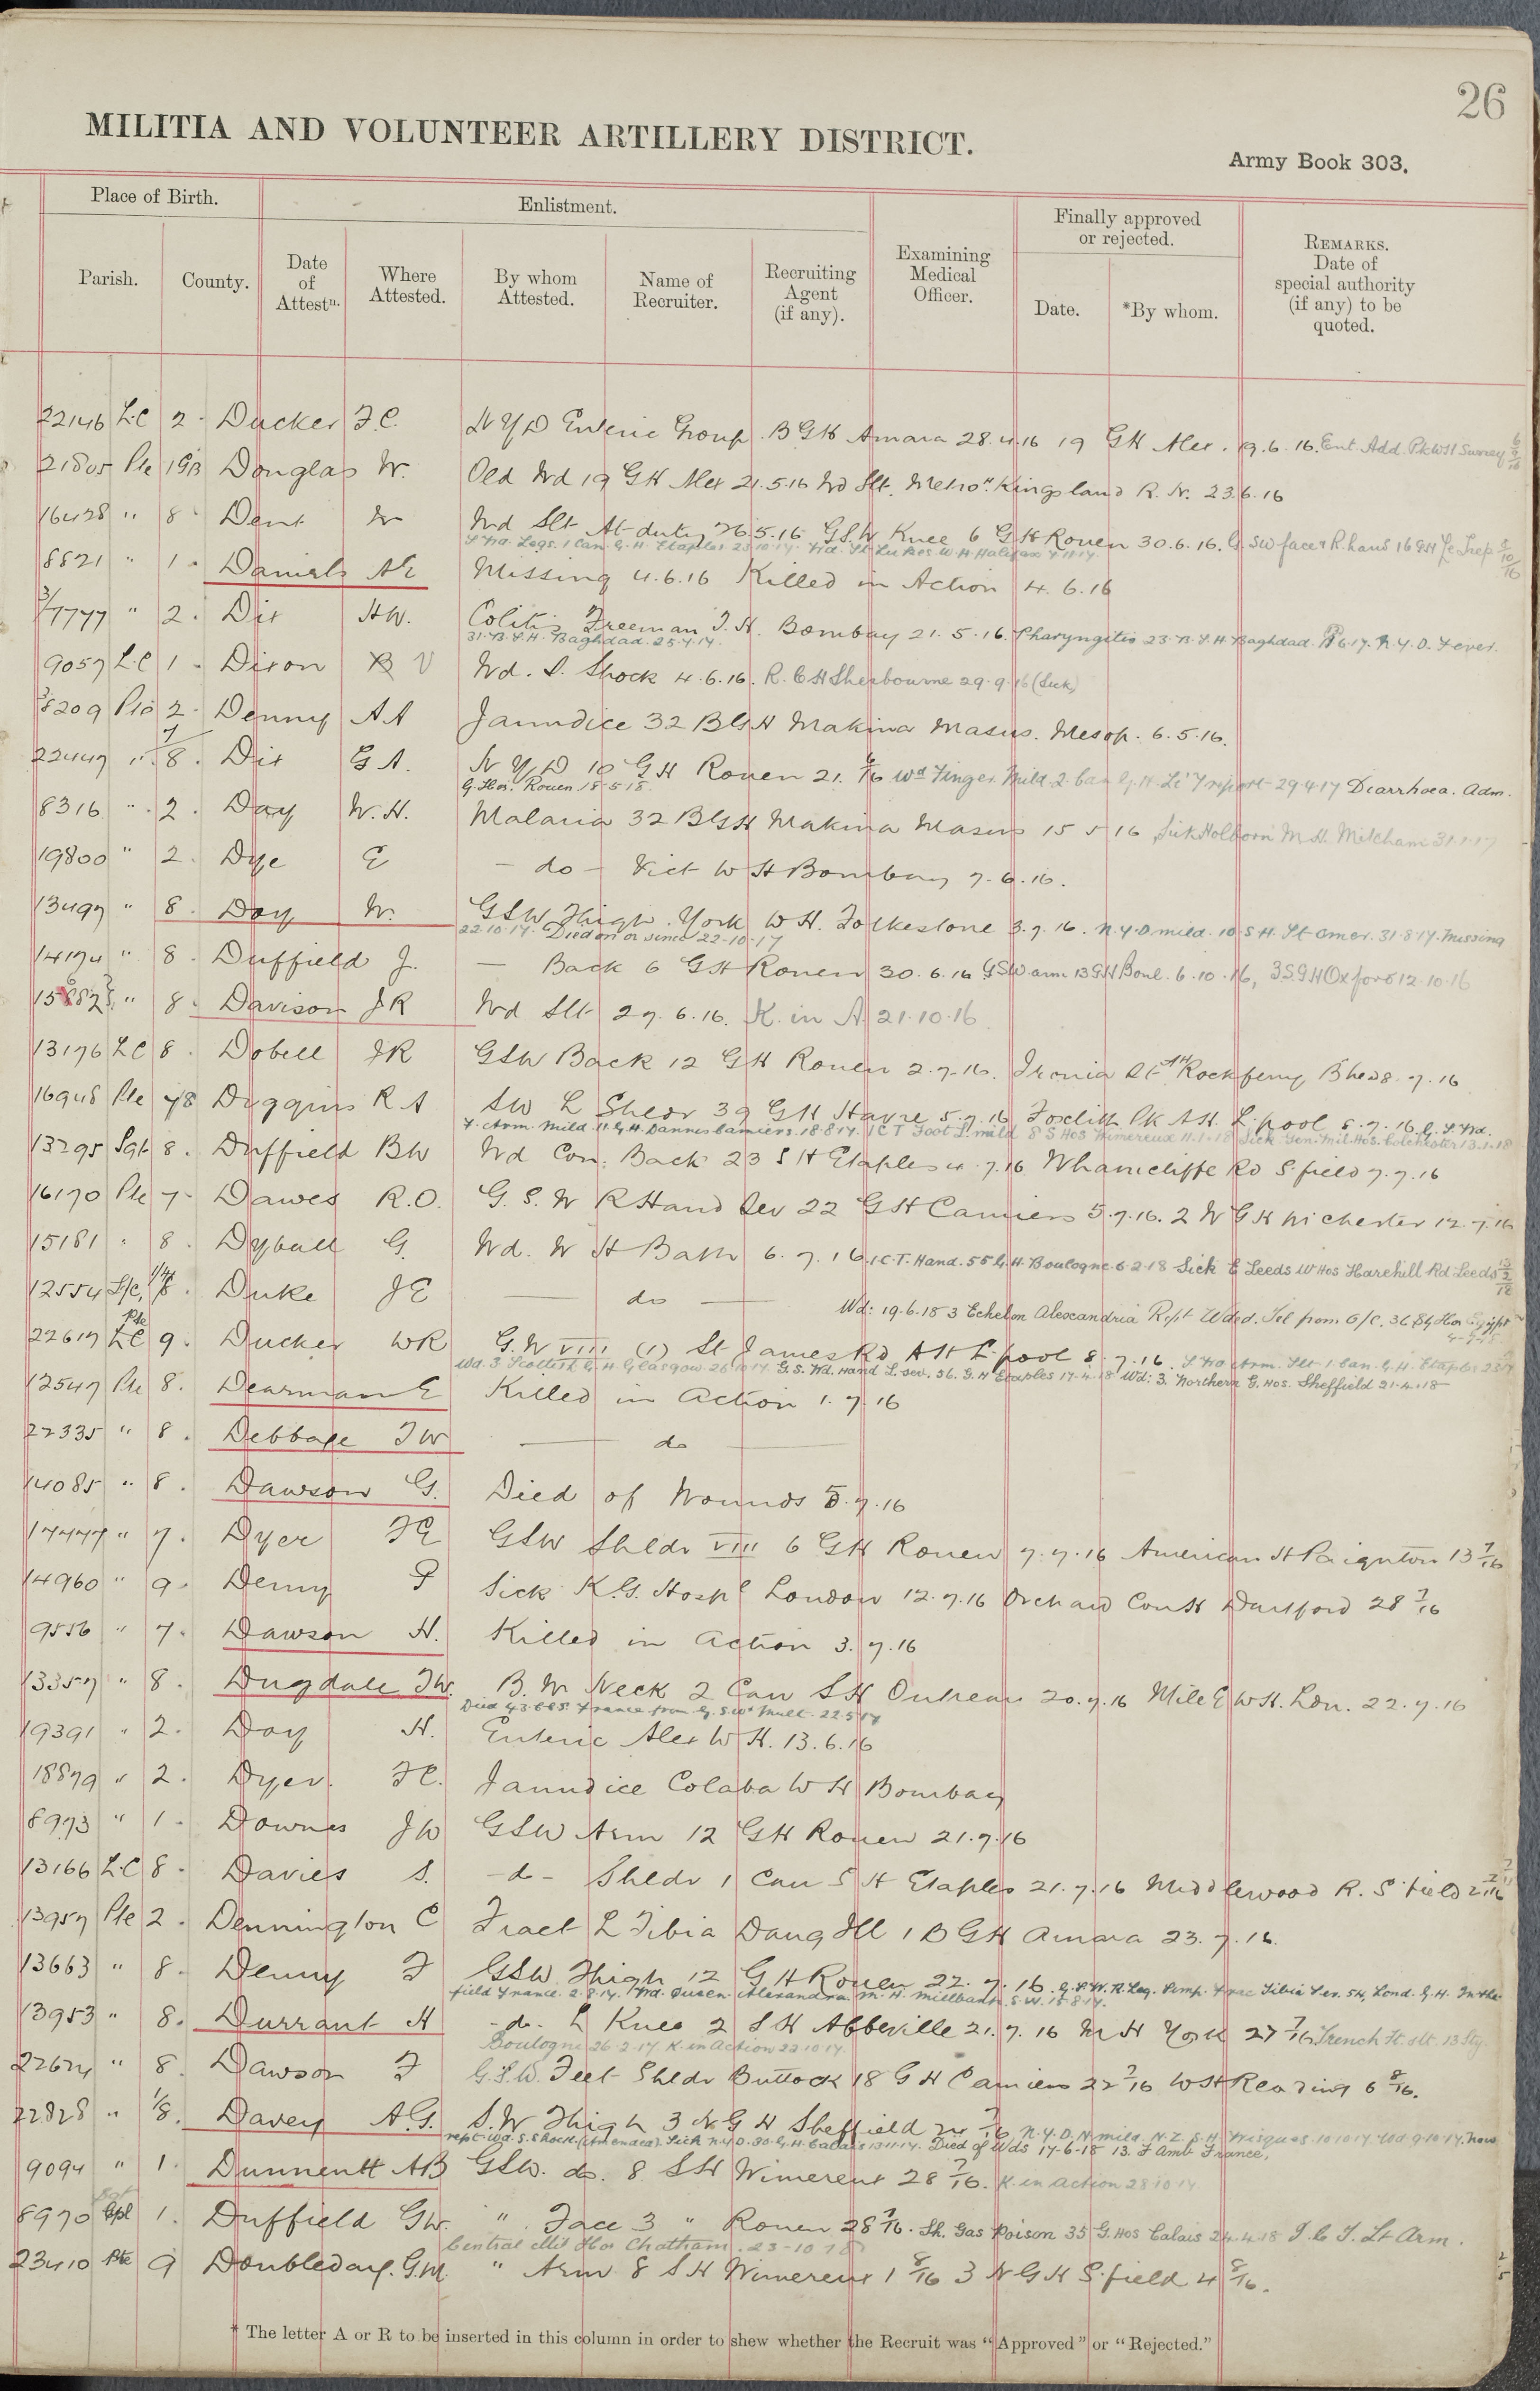 26
MILITIA AND VOLUNTEER ARTILLERY DISTRICT.
Army Book 303.
Place of Birth.
Enlistment.
Finally approved
or rejected.
Parish.
County.
Date
of
Attestn.
Where
Attested.
By whom
Attested.
Name of
Recruiter.
Recruiting
Agent
(if any).
Examining
Medical
Officer.
Date.
*By whom.
REMARKS.
Date of
special authority
(if any) to be
quoted.
22146 L.C 2 Ducker F.C. N Y D Enteric Group. B G H Amara 28.4.16 19 G H Alex. 9.6.16. Ent. Add. Pk WH Surrey
21805 Pte 1GB Douglas W. Old Wd 19 G H Alex 21.5.16 Wd Slt. Metron. Kingsland R. N. 23.6.16
16428 " 8 Dent W Wd Slt At duty 26.5.16 GSW Knee 6 G H Rouen 30.6.16. G.SW face & R. hand 16 GH Le Trep
Legs. 1 Can. G. H. Etaples 23.10.17. St Lukes W. H. Halifax 7.11.17
8821 " 1 Daniels A E Missing 4.6.16 Killed in Action 4.6.16
3/7777 " 2 Dix H W. Colitis Freeman T. H. Bombay 21.5.16. Pharyngitis 23. B. S. H. Baghdad. N.Y.D. Fever.
31. B. S. H. Baghdad. 25.7.17.
9057 L.C 1 Dixon V Wd. S. Shock 4.6.16. R. C H Sherbourne 29.9.16 (Sick)
3/8209 Pte 2 Denny A A Jaundice 32 BGH Makina Masus. Mesop. 6.5.16.
22447 " 7/8 Dix G A. N Y D 10 G H Rouen 21. 6/16 Wd Finger. Mild. 2. Can G. H. Le Treport 29.4.17 Diarrhoea. Adm.
G. Hos. Rouen 18.5.18.
8316 " 2 Day W. H. Malaria 32 BGH Makina Masus 15 5 16 Sick Holborn M. H. Mitcham 31.1.17
19800 " 2 Dye E - do - Vict W H Bombay 7.6.16.
13497 " 8 Day W. GSW Thigh. York W H. Folkestone 3.7.16. N.Y.D mild. 10 S H. St Omer. 31.8.17. Missing
22.10.17. Died on or since 22-10-17
14174 " 8 Duffield J. — Back 6 G H Rouen 30.6.16 GSW arm 13 GH Boul. 6.10.16, 3 S G H Oxford 12.10.16
" 8 Davison J R Wd Slt 27.6.16. K. in A. 21.10.16
13176 LC 8 Dobell J R GSW Back 12 G H Rouen 2.7.16. Ironia St AH Rockferry Bhead 8.7.16
16948 Pte 7/8 Diggins R A SW L Shldr 39 G H Havre 5.7.16 Foxlith Pk A H. L'pool 8.7.16
Arm. Mild. 11. G. H. Dannes Camiers. 18.8.17. I C T Foot L. mild 8 S Hos Wimereux 11.1.18 Sick Gen. Mil. Hos. Colchester 13.1.18
13295 Sgt 8 Duffield B W Wd Con: Back 23 S H Etaples 4.7.16 Wharncliffe Rd S'field 7.7.16
16170 Pte 7 Dawes R.O. G. S. W R Hand Sev 22 G H Camiers 5.7.16. 2 W G H M'chester 12.7.16
15181 " 8 Dyball G. Wd. W H Bath 6.7.16. I.C.T. Hand. 55 G. H. Boulogne 6.2.18 Sick E Leeds W Hos Harehill Rd Leeds
12554 L/c 8 Duke J E — do — Wd: 19.6.18 3 Echelon Alexandria Rept Wded. Tel from O/C. 36 Stg Hos Egypt
22617 Pte 9 Ducker W R G. W VIII (1) St James Rd A H L'pool 8.7.16. Arm. Slt 1 Can. G. H. Etaples
Wd. 3 Scottish G. H. Glasgow 26.10.17. G. S. Wd. Hand L. sev. 36. G. H Etaples 17.4.18 Wd: 3. Northern G. Hos. Sheffield 21.4.18
12547 Pte 8 Dearman E Killed in Action 1.7.16
22335 " 8 Debbage T W — do —
14085 " 8 Dawson G. Died of Wounds 5.7.16
17477 " 7 Dyer F E GSW Shldr VIII 6 G H Rouen 7.7.16 American H Paignton 13 7/16
14960 " 9 Denny P Sick K. G. Hospl London 12.7.16 Orchard Con H Dartford 28 7/16
9556 " 7 Dawson H. Killed in Action 3.7.16
13357 " 8 Dugdale T W. B. W Neck 2 Can S H Outreau 20.7.16 Mile E W H. Lon. 22.7.16
Died 43. CCS. France from G. S. Wd Mult. 22.5.17
19391 " 2 Day H. Enteric Alex W H. 13.6.16
18879 " 2 Dyer F C. Jaundice Colaba W H Bombay
8973 " 1 Downes J W GSW Arm 12 G H Rouen 21.7.16
13166 L.C 8 Davies S. - do - Shldr 1 Can S H Etaples 21.7.16 Middlewood R. S'field
13957 Pte 2 Dennington C Fract L Tibia Dang Ill 1 B G H Amara 23.7.16.
13663 " 8 Denny F GSW Thigh 12 G H Rouen 22.7.16. G. S. W. R. Leg. Frac Tibia Sev. 5H, Lond. G. H. In the
field France 2.8.17. Wd. Queen Alexandra M. H. Millbank. S. W. 15.8.17.
13953 " 8 Durrant H - do - L Knee 2 S H Abbeville 21.7.16 M H York 27 7/16 Trench Ft slt. 13 Stg.
Boulogne 26.2.17. K. in Action 22.10.17.
22624 " 8 Dawson F G. S. W. Feet Shldr Buttock 18 G H Camiers 22 7/16 W H Reading 6 8/16.
22828 " 1/8 Davey A.G. S. W Thigh 3 N G H Sheffield 24 7/16 N.Y.D. N mild. N. Z. S. H. Wisques. 10.10.17. Wd. 9.10.17. now
rept. Wd. S. Shock. (Amended). Sick N.Y.D. 30. G. H. Calais 13.11.17. Died of Wds 17-6-18 13. F Amb France.
9094 " 1 Dunnett A B GSW. do. 8 S H Wimereux 28 7/16. K. in Action 28.10.17.
8970 Cpl 1 Duffield G W. " Face 3 " Rouen 28 7/16. Sh. Gas Poison 35 G. Hos Calais 24.4.18 I. C. T. Lt Arm.
Central Mil Hos Chatham. 23-10-18
23410 Pte 9 Doubleday. G.M " Arm 8 S H Wimereux 1 8/16 3 N G H S'field 4 8/16.
* The letter A or R to be inserted in this column in order to shew whether the Recruit was "Approved" or "Rejected."